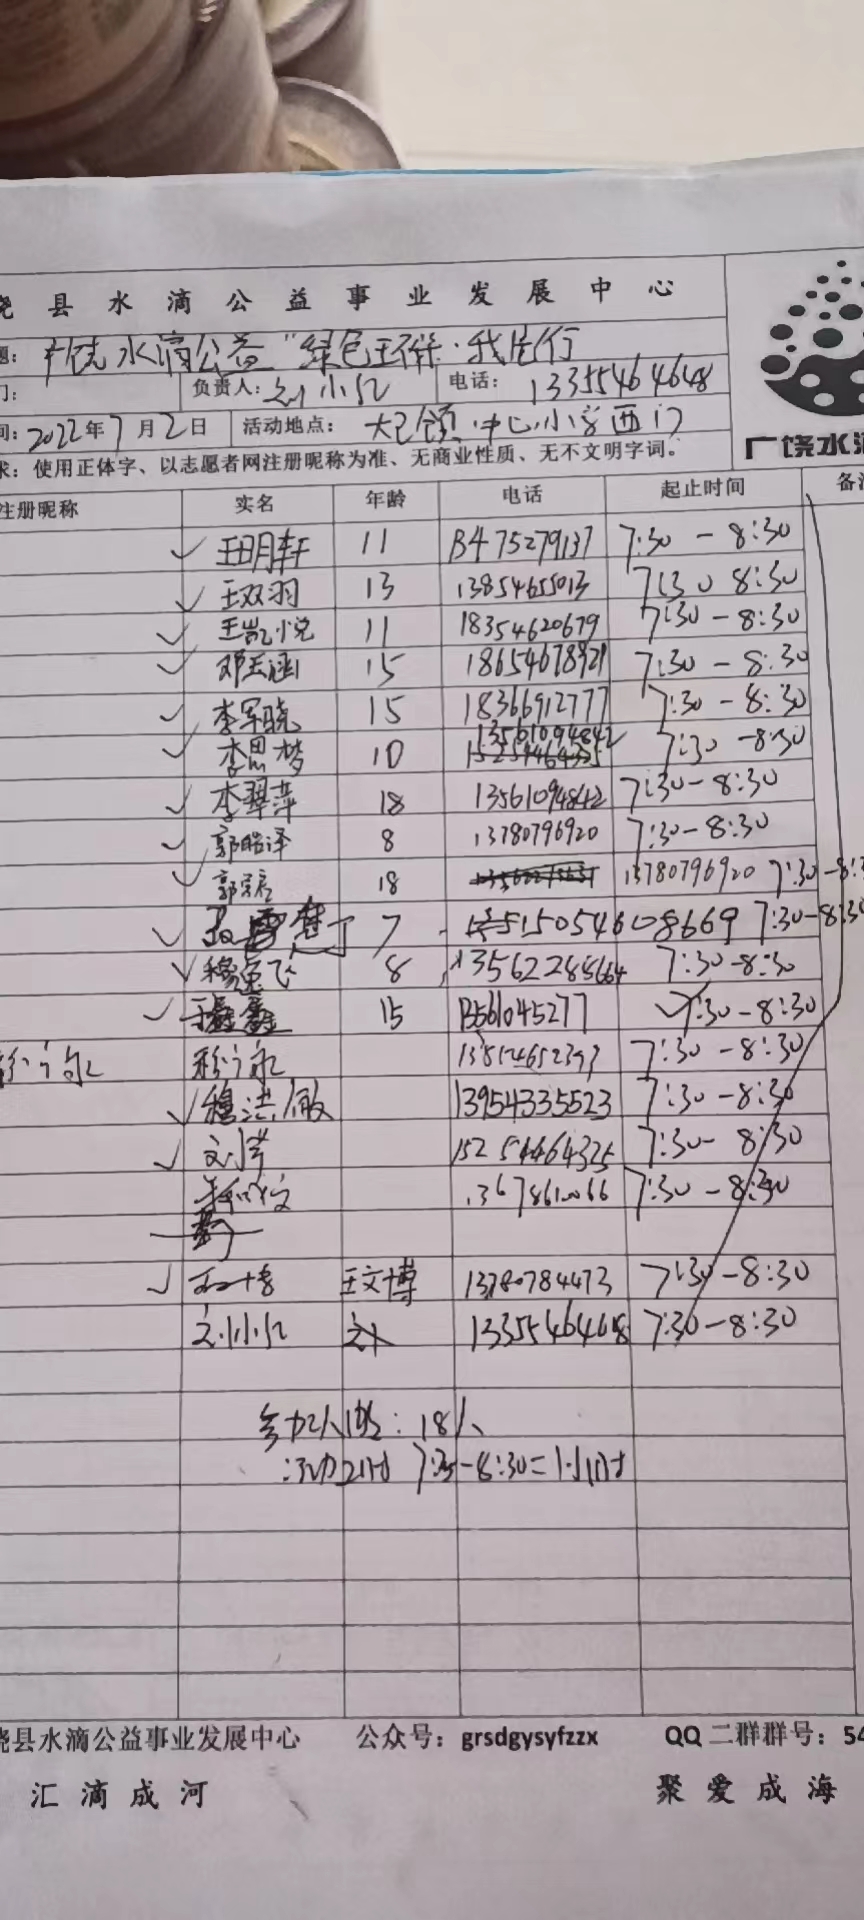 饶县水滴公益事业发展中心
题：广饶水滴公益"绿色环保·我先行
门： 负责人：刘小红 电话：13355464648
间：2022年7月2日 活动地点：大码头中心小学西门
求：使用正体字、以志愿者网注册昵称为准、无商业性质、无不文明字词。
广饶水滴
注册昵称 实名 年龄 电话 起止时间 备注
✓ 王玥轩 11 13475279137 7:30-8:30
✓ 王双羽 13 13854655013 7:30 8:30
✓ 王凯悦 11 18354620679 7:30-8:30
✓ 邓玉涵 15 18654678921 7:30-8:30
✓ 李军晓 15 18366912777 7:30-8:30
✓ 李思梦 10 13561094842 7:30-8:30
✓ 李翠萍 18 13561094842 7:30-8:30
✓ 郭皓译 8 13780796920 7:30-8:30
✓ 郭 18 13780796920 7:30-8:3
✓ 7 15054608669 7:30-8:30
✓ 飞 8 13562285664 7:30-8:30
✓ 15 13561045277 7:30-8:30
7:30-8:30
✓ 穆洪 13954335523 7:30-8:30
✓ 刘芹 15254464325 7:30-8:30
7:30-8:30
✓ 王文博 13780784473 7:30-8:30
刘小红 13355464648 7:30-8:30
参加人数：18人
活动时 7:30-8:30=1小时
饶县水滴公益事业发展中心 公众号：grsdgysyfzzx QQ二群群号：54
汇滴成河 聚爱成海